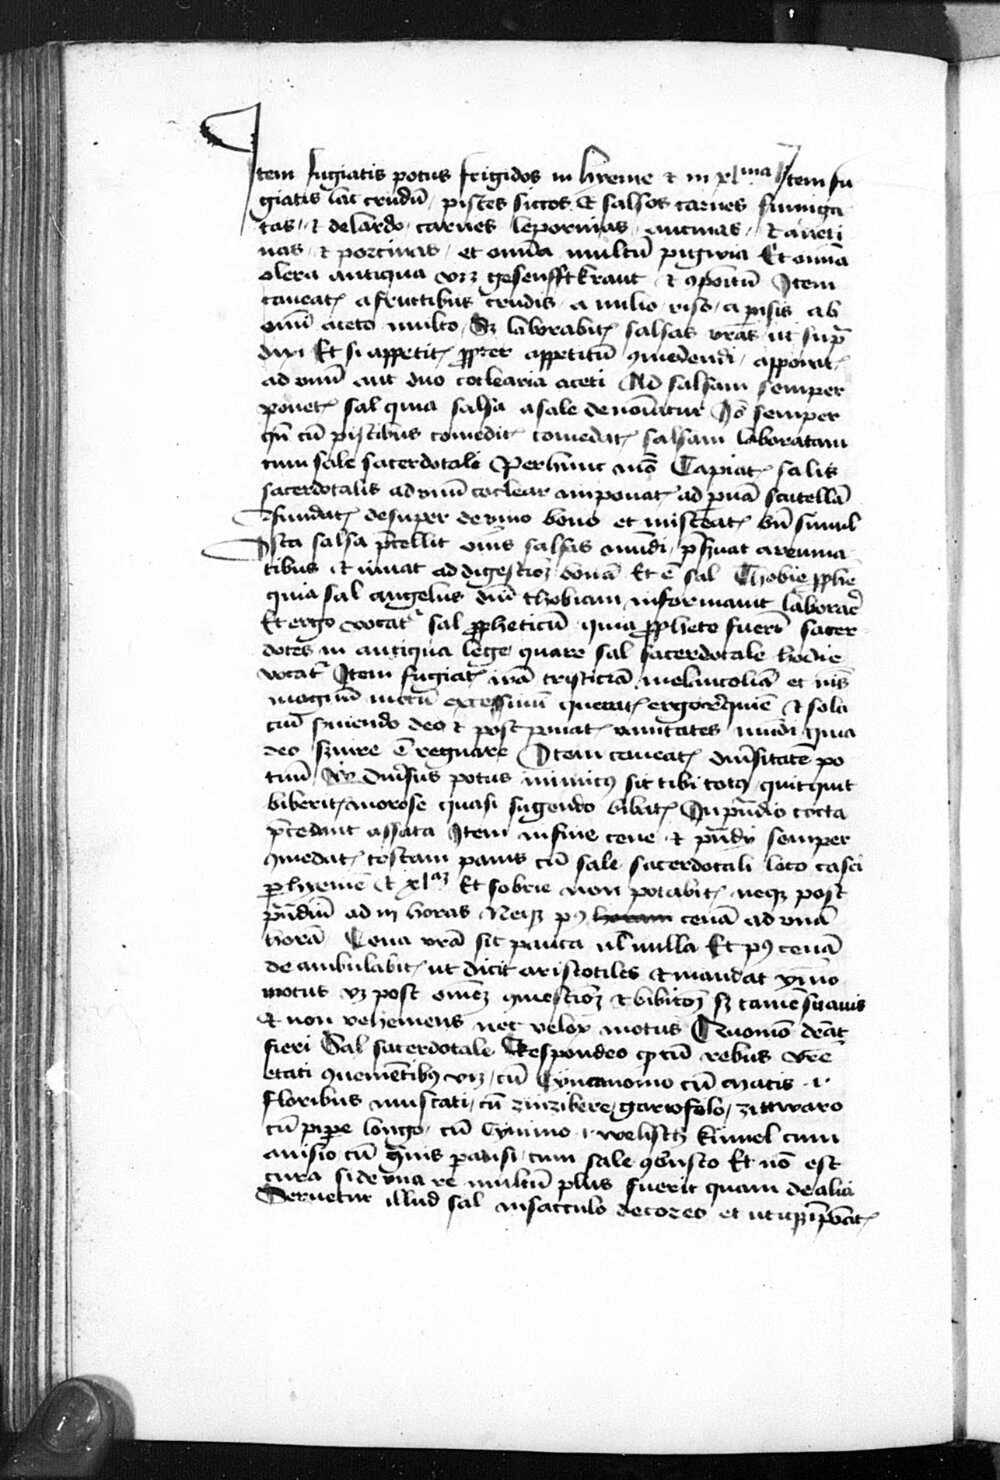 Item fugiatis potus frigidos in hyeme et in xlma Item fu
giatis lac crudū pisces siccos et salsos carnes fumiga
tas et de lardo carnes leporinas aucinas et
nas et porcinas et omnia multū pigwia Et omnia
olera antiqua vz gesenfftkraut et
caveatr a fructibus crudis a milio riso a pisis ab
omni aceto multo Sz laborabitr salsas vras ut supra
dixi Et si appetitr propter appetitū comedendi apponatr
ad vnū aut duo coclearia aceti Ad salsam semper
ponetr sal quia salsa a sale denominatur Io semper
qn cū piscibus comeditr comedatr salsam laboratam
cum sale sacerdotali Per hunc modū Capiatr salis
sacerdotalis ad vnū coclear imponatr ad pruā scutellā
Infundatr desuper de vino bono et misceatr bn simul
Ista salsa pcellit oms salsas mundi a reuma
tibus et iuvat ad digestionz bonā Et ē sal Thobie pphē
quia sal angelus dni thobiam informavit laborare
Et ergo vocatr sal ppheticū quia pphete fuert sacer
dotes in antiqua lege quare sal sacerdotale hodie
vocatr Item fugiatr irā tristiciā melancoliā et nis
magnū metū excessiuū queratr ergo requiē et sola
ciū seruiendo deo et post vanitates mundi quia
deo servire ē regnare Item caveatr diversitatē po
tuū vz diversus potus inimicus sit tibi totus quitquit
biberitr morose quasi sugendo bibatr In prandio cocta
pcedant assata Item in fine cene et prandy semper
comedatr tostam panis cū sale sacerdotali loco casei
per hyemē et xlaz Et sobrie non potabitr neqz post
prandiū ad iii horas Neqz p9 horam cenā ad vnā
horā Cena vrā sit pauca ul nulla Et p9 cenā
deambulabitr ut dicit aristotiles et mandat ymo
motus vz post omēz comestionz et bibitionz sz tamē suavis
et non vehemens nec velox motus Quomō debeat
fieri Sal sacerdotale Respondeo qp cū rebus vrē
etati convenientibus vz cū Cynamomo cū macis .i.
floribus muscati cū zinzibere gariofolo zittwaro
cū pipere longo cū Cymino .i. welisch kimmel cum
anisio cū granis paradisi cum sale combusto Et nō est
cura si de vna re multum plus fuerit quam de alia
Servetur illud sal in sacculo de coreo et